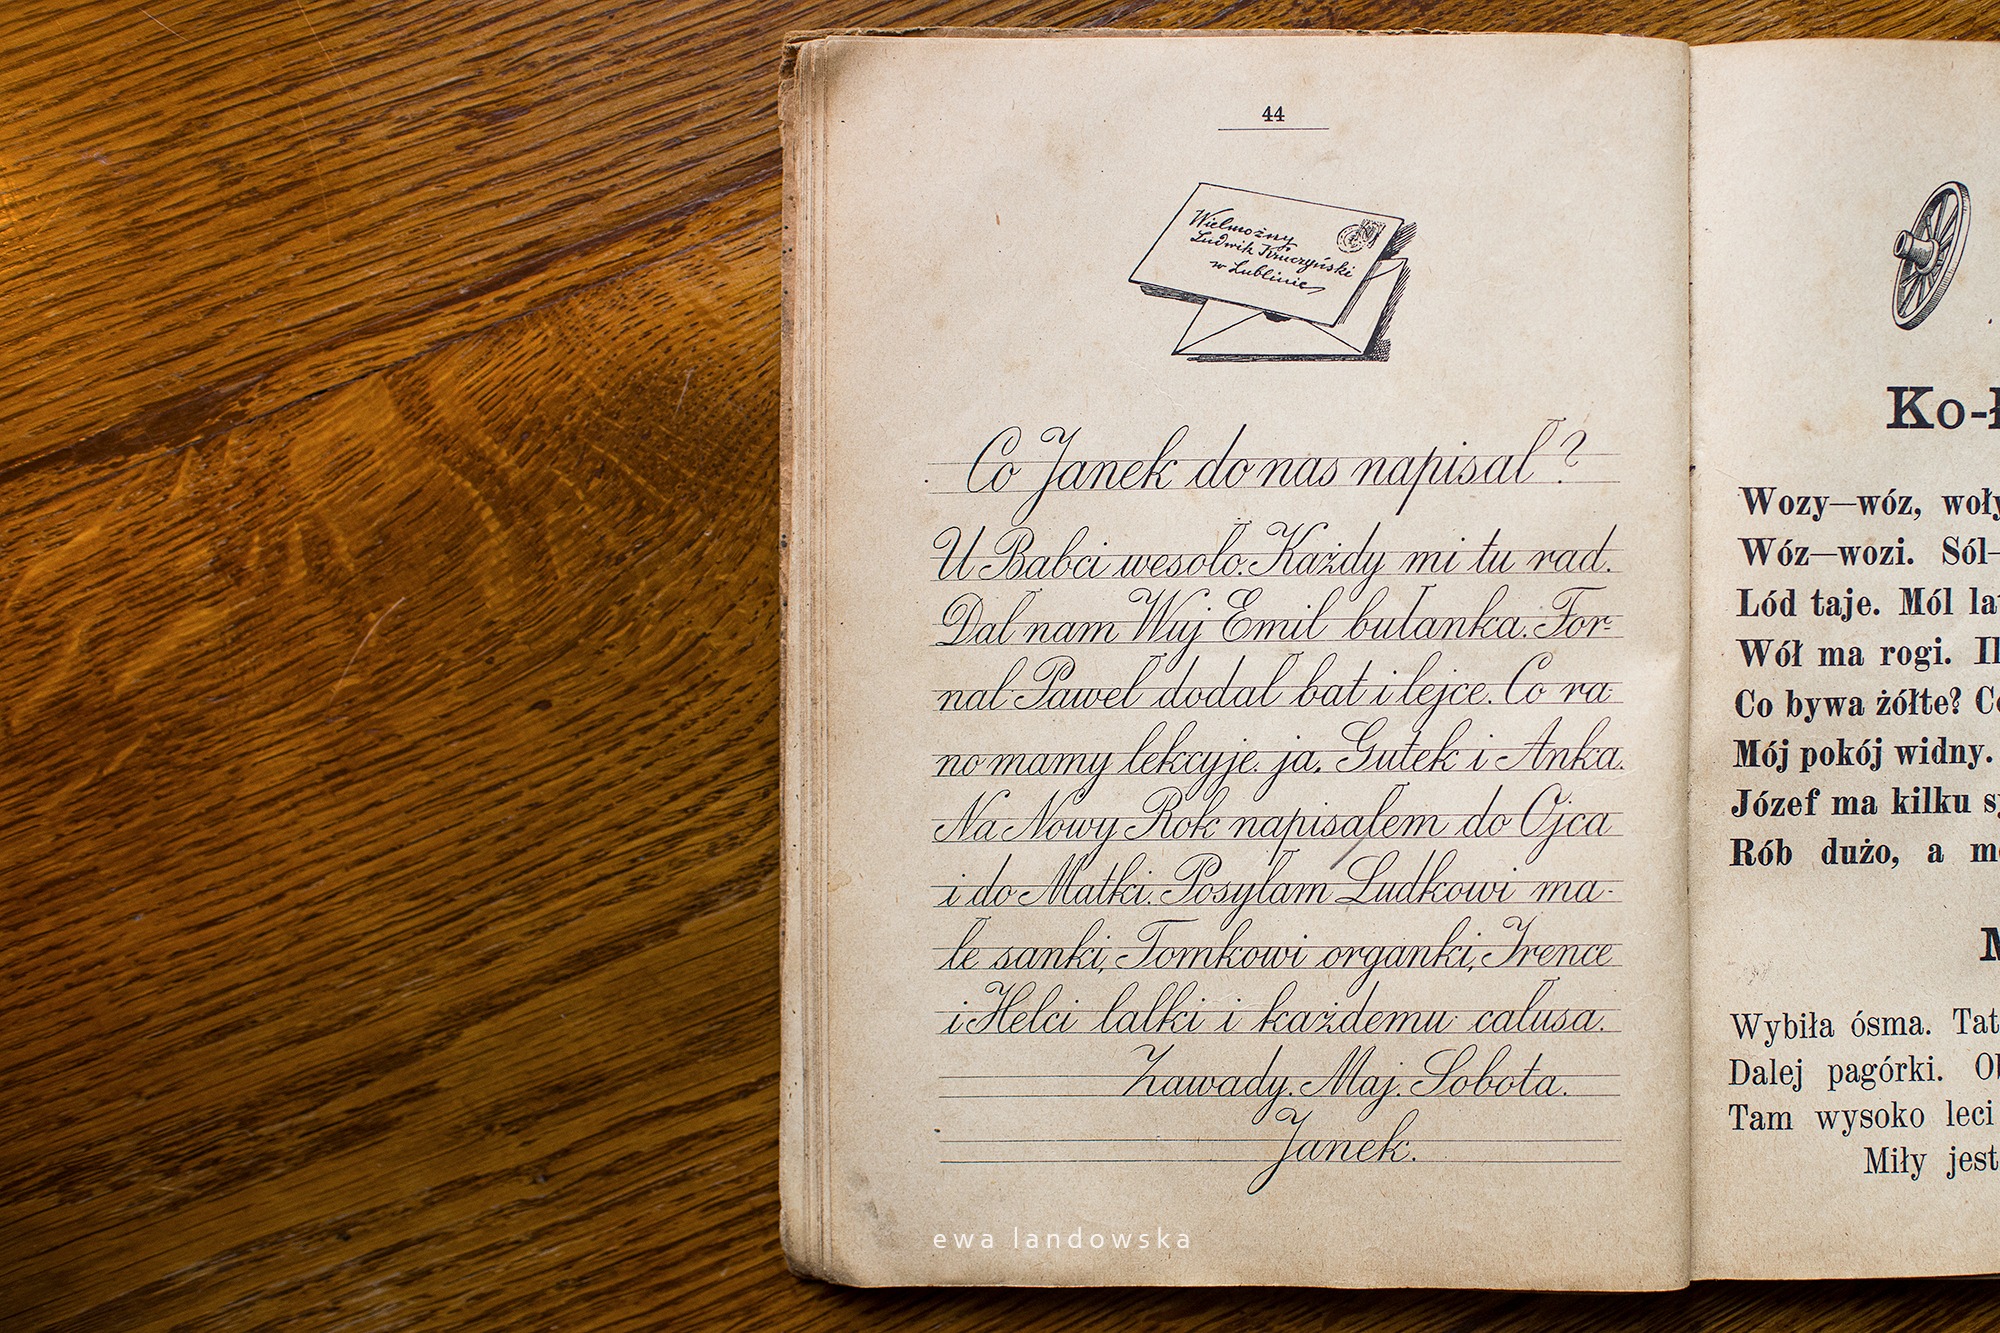 44
Wielmożny
Ludwik Kruczyński
w Lublinie
Co Janek do nas napisał?
U Babci wesoło. Każdy mi tu rad.
Dał nam Wuj Emil bułanka. For-
nal Paweł dodał bat i lejce. Co ra-
no mamy lekcyje. ja, Gutek i Anka.
Na Nowy Rok napisałem do Ojca
i do Matki. Posyłam Ludkowi ma-
łe sanki, Tomkowi organki, Irence
i Helci lalki i każdemu całusa.
Zawady. Maj. Sobota.
Janek.
Ko-ł
Wozy—wóz, woły
Wóz—wozi. Sól—
Lód taje. Mól
Wół ma rogi.
Co bywa żółte?
Mój pokój widny.
Józef ma kilku
Rób dużo, a
M
Wybiła ósma.
Dalej pagórki.
Tam wysoko leci
Miły jest
ewa landowska